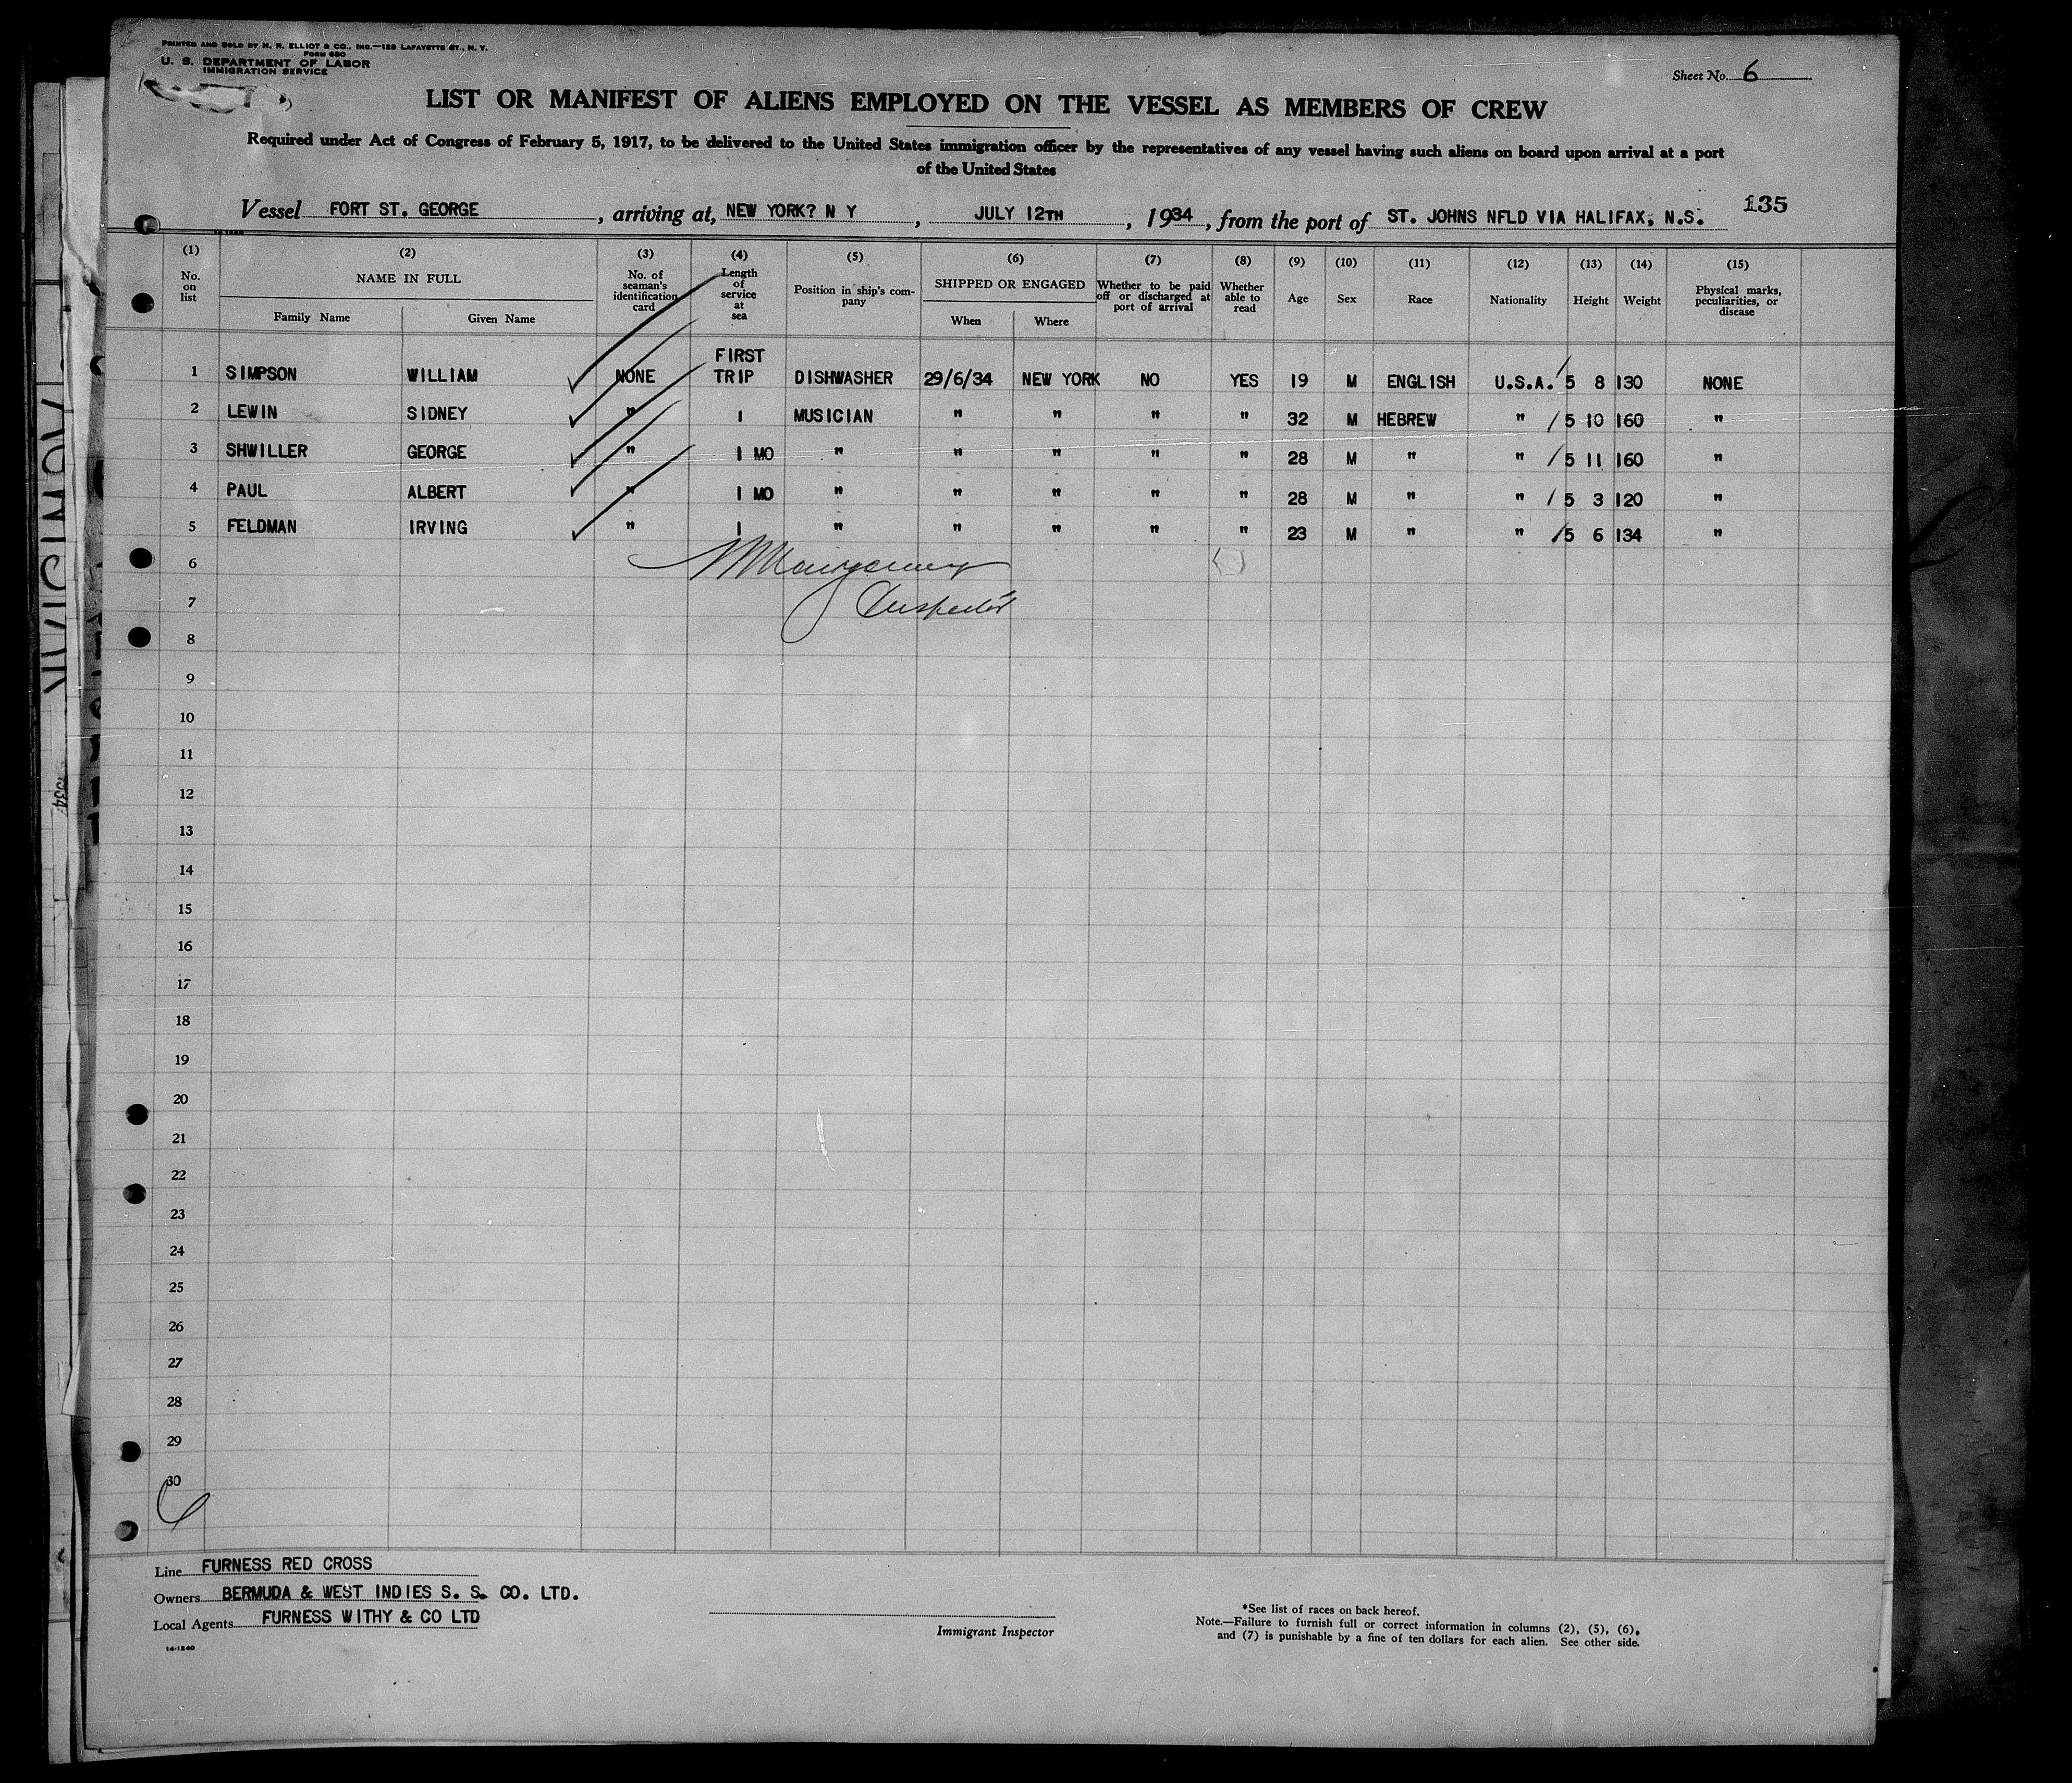 PRINTED AND SOLD BY N. R. ELLIOT & CO., INC.—129 LAFAYETTE ST., N. Y.
FORM 680
U. S. DEPARTMENT OF LABOR
IMMIGRATION SERVICE
Sheet No. 6
LIST OR MANIFEST OF ALIENS EMPLOYED ON THE VESSEL AS MEMBERS OF CREW
Required under Act of Congress of February 5, 1917, to be delivered to the United States immigration officer by the representatives of any vessel having such aliens on board upon arrival at a port
of the United States
135
Vessel FORT ST. GEORGE, arriving at, NEW YORK? N Y, JULY 12TH, 1934, from the port of ST. JOHNS NFLD VIA HALIFAX, N.S.
(1) No. on list
(2) NAME IN FULL
Family Name Given Name
(3) No. of seaman's identification card
(4) Length of service at sea
(5) Position in ship's company
(6) SHIPPED OR ENGAGED
When Where
(7) Whether to be paid off or discharged at port of arrival
(8) Whether able to read
(9) Age
(10) Sex
(11) Race
(12) Nationality
(13) Height
(14) Weight
(15) Physical marks, peculiarities, or disease
1 SIMPSON WILLIAM NONE FIRST TRIP DISHWASHER 29/6/34 NEW YORK NO YES 19 M ENGLISH U.S.A. 5 8 130 NONE
2 LEWIN SIDNEY " 1 MUSICIAN " " " " 32 M HEBREW " 5 10 160 "
3 SHWILLER GEORGE " 1 MO " " " " " 28 M " " 5 11 160 "
4 PAUL ALBERT " 1 MO " " " " " 28 M " " 5 3 120 "
5 FELDMAN IRVING " 1 " " " " " 23 M " " 5 6 134 "
6
Inspector
7
8
9
10
11
12
13
14
15
16
17
18
19
20
21
22
23
24
25
26
27
28
29
30
Line FURNESS RED CROSS
Owners BERMUDA & WEST INDIES S. S. CO. LTD.
Local Agents FURNESS WITHY & CO LTD
14-1240
Immigrant Inspector
*See list of races on back hereof.
Note.—Failure to furnish full or correct information in columns (2), (5), (6),
and (7) is punishable by a fine of ten dollars for each alien. See other side.